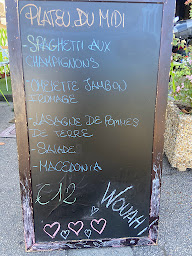 PLATEU DU MIDI
-SPAGHETTI AUX
CHAMPIGNONS
-OMELETTE JAMBON
FROMAGE
-LASAGNE DE POMMES
DE TERRE
-SALADE
-MACEDONIA
€12
WOUAH!